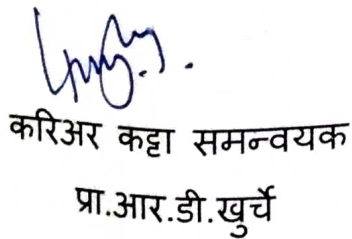 करिअर कट्टा समन्वयक
प्रा.आर.डी.खुर्चे